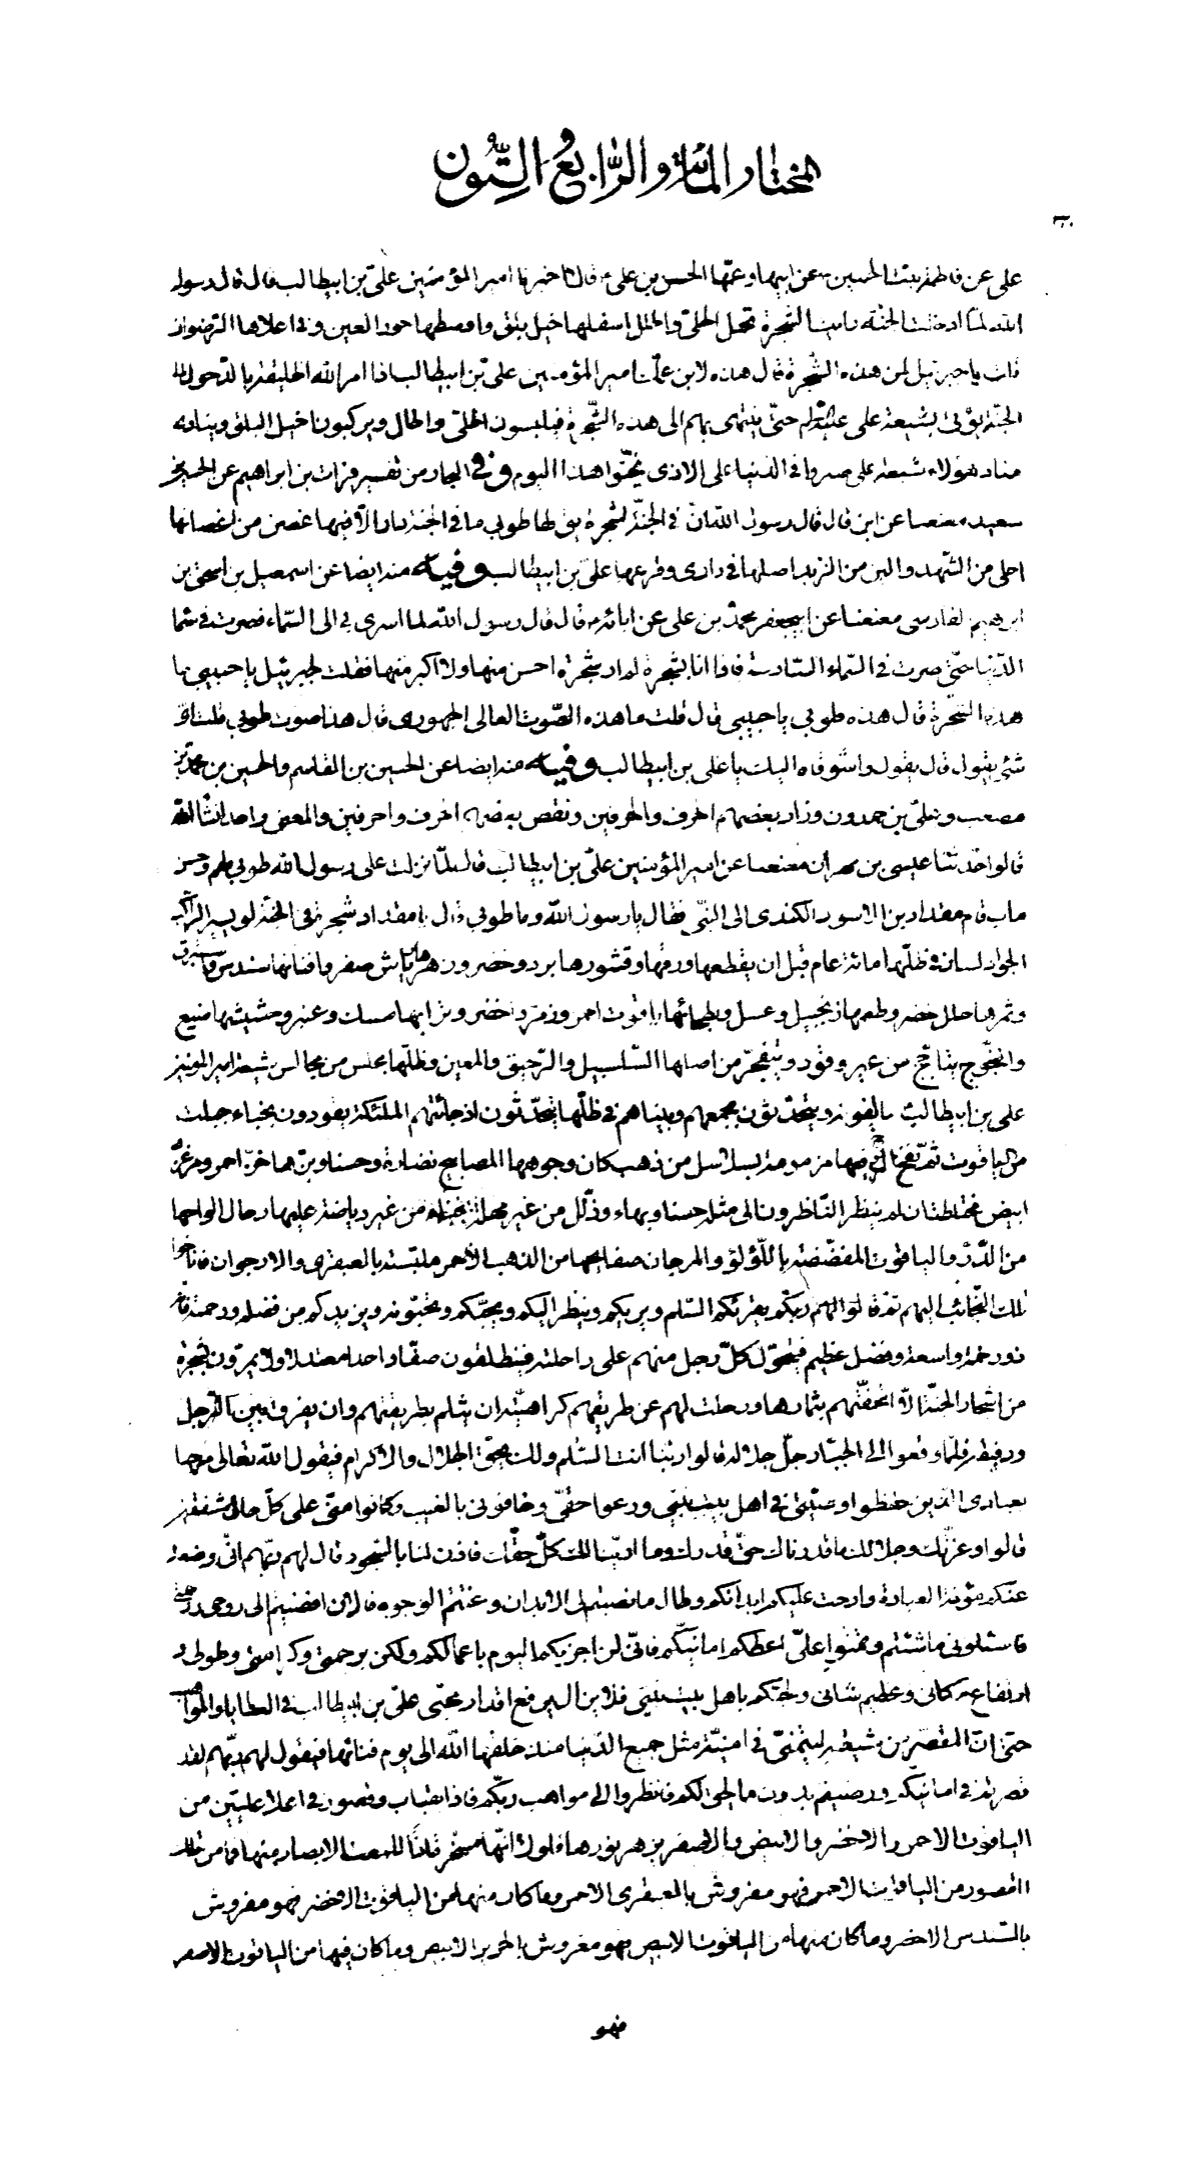 المختار المائة والرابع الستون
علي عن فاطمة بنت الحسين عن ابيها وعمّها الحسن بن علي قال اخبرنا امير المؤمنين عليّ بن ابيطالب قال قال رسول
الله لمّا ادخلت الجنّة رايت الشجرة تحمل الحلي والحلل اسفلها خيل بلق واوسطها حور العين وفي اعلاها الرّضوان
قلت يا جبرئيل لمن هذه الشّجرة قال هذه لابن عمّك امير المؤمنين علي بن ابيطالب اذا امر الله الخليقة بالدّخول الى
الجنّة يؤتى بشيعة علي حتّى ينتهى بهم الى هذه الشّجرة فيلبسون الحلي والحلل ويركبون الخيل البلق وينادي
مناد هؤلاء شيعة علي صبروا في الدنيا على الاذى فحبوا هذا اليوم وفي البحار من تفسير فرات بن ابراهيم عن الحسين بن
سعيد معنعنا عن قال قال رسول الله انّ في الجنّة لشجرة يق لها طوبى ما في الجنة دار الّا فيها غصن من اغصانها
احلى من الشّهد والين من الزبد اصلها في داري وفرعها في دار علي بن ابيطالب وفيه منه ايضا عن اسمعيل بن اسحق بن
ابرهيم الفارسي معنعنا عن ابيجعفر محمّد بن علي عن ابائه قال قال رسول الله لما اسري بي الى السّماء فصرت في سماء
الدّنيا حتّى صرت في السّماء السّادسة فاذا انا بشجرة لم ار شجرة احسن منها ولا اكبر منها فقلت لجبرئيل يا حبيبي ما
هذه الشّجرة قال هذه طوبى يا حبيبي قال قلت ما هذه الصّوت العالي الجهوري قال هذا صوت طوبى قلت ايّ
شئ يقول قال يقول واشوقاه اليك يا علي بن ابيطالب وفيه منه ايضا عن الحسين بن القاسم والحسين بن محمّد بن
مصعب وعلي بن حمدون وزاد بعضهم الحرف والحرفين ونقص بعضهم الحرف والحرفين والمعنى واحد انشاء الله
قالوا حدّثنا عيسى بن مهران معنعنا عن امير المؤمنين عليّ بن ابيطالب قال لمّا نزلت على رسول الله طوبى لهم وحسن
ماب قام مقداد بن الاسود الكندي الى النّبي فقال يا رسول الله وما طوبى قال يا مقداد شجرة في الجنّة لو يسير الراكب
الجواد لسار في ظلّها مائة عام قبل ان يقطعها ورقها وقشورها برد وخضر وزهرها رياش صفر وافنانها سندس واستبرق
وثمرها حلل خضر وطعمها زنجبيل وعسل وبطحائها ياقوت احمر وزمرّد اخضر وترابها مسك وعنبر وحشيشها منيع
والنجّوج يتاجّج من غير وقود ويتفجّر من اصلها السّلسبيل والرّحيق والمعين وظلّها مجلس من مجالس شيعة امير المؤمنين
علي بن ابيطالب يالفونه ويتحدّثون بجمعهم وبينا هم في ظلّها يتحدّثون اذ جائتهم الملئكة يقودون نجباء جبلت
من الياقوت ثمّ نفخ الروح فيها مزمومة بسلاسل من ذهب كان وجوهها المصابيح نضارة وحسنا وبرها خزّ احمر ومرعزّ
ابيض مختلطان لم ينظر النّاظرون الى مثله حسنا وبهاء وذلّل من غير مهلة نجباء من غير رياضة عليها رحال الواحها
من الدّرّ والياقوت المفضّضة باللّؤلؤ والمرجان صفائحها من الذهب الاحمر ملبّسة بالعبقري والارجوان فاناخوا
تلك النّجائب اليهم ثمّ قالوا لهم ربّكم يقرئكم السّلم ويريكم وينظر اليكم ويحبّكم وتحبّونه ويزيدكم من فضله ورحمته فانّه
ذو رحمة واسعة وفضل عظيم فيتحوّل كلّ رجل منهم على راحلته فينطلقون صفّا واحدا معتدلا ولا يمرّون بشجرة
من اشجار الجنّة الّا اتحفتهم بثمارها ورحلت لهم عن طريقهم كراهيّة ان يثلم طريقتهم وان يفرق بين الرّجل
ورفيقه فلمّا وقعوا الى الجبّار جلّ جلاله قالوا ربّنا انت السّلم ولك يحقّ الجلال والاكرام فيقول الله تعالى مرحبا
بعبادي الذين حفظوا وصيّتي في اهل بيت نبيّي ورعوا حقّي وخافوني بالغيب وكانوا منّي على كلّ حال مشفقين
قالوا وعزّتك وجلالك ما قدرناك حقّ قدرك وما ادّينا اليك كلّ حقّك فاذن لنا بالسّجود قال لهم ربّهم انّي وضعت
عنكم مؤنة العبادة وارحت عليكم ابدانكم وطال ما نصبتم لي الابدان وعنتم الوجوه فالان افضيتم الى روحي ورحمتي
فاسئلوني ما شئتم وتمنّوا عليّ اعطكم امانيكم فانّي لن اجزيكم اليوم باعمالكم ولكن برحمتي وكرامتي وطولي و
ارتفاع مكاني وعظيم شاني ولحبّكم باهل بيت نبيّي فلا يزال يرفع اقدار محبّي عليّ بن ابيطالب في العطايا والمواهب
حتى انّ المقصّر من شيعته ليتمنّى في امنيّته مثل جميع الدّنيا منذ خلقها الله الى يوم فنائها فيقول لهم ربّهم لقد
قصرتم في امانيكم ورضيتم بدون ما يحق لكم فانظروا الى مواهب ربّكم فاذا بقباب وقصور في اعلا عليّين من
الياقوت الاحمر والاخضر والابيض والاصفر يزهر نورها فلولا انّها مسخّر اذا للمعت الابصار منها فما من تلك
القصور من الياقوت الاحمر فهو مفروش بالعبقري الاحمر وما كان منها من الياقوت الاخضر فهو مفروش
بالسّندس الاخضر وما كان منها من الياقوت الابيض فهو مفروش بالحرير الابيض وما كان فيها من الياقوت الاصفر
فهو